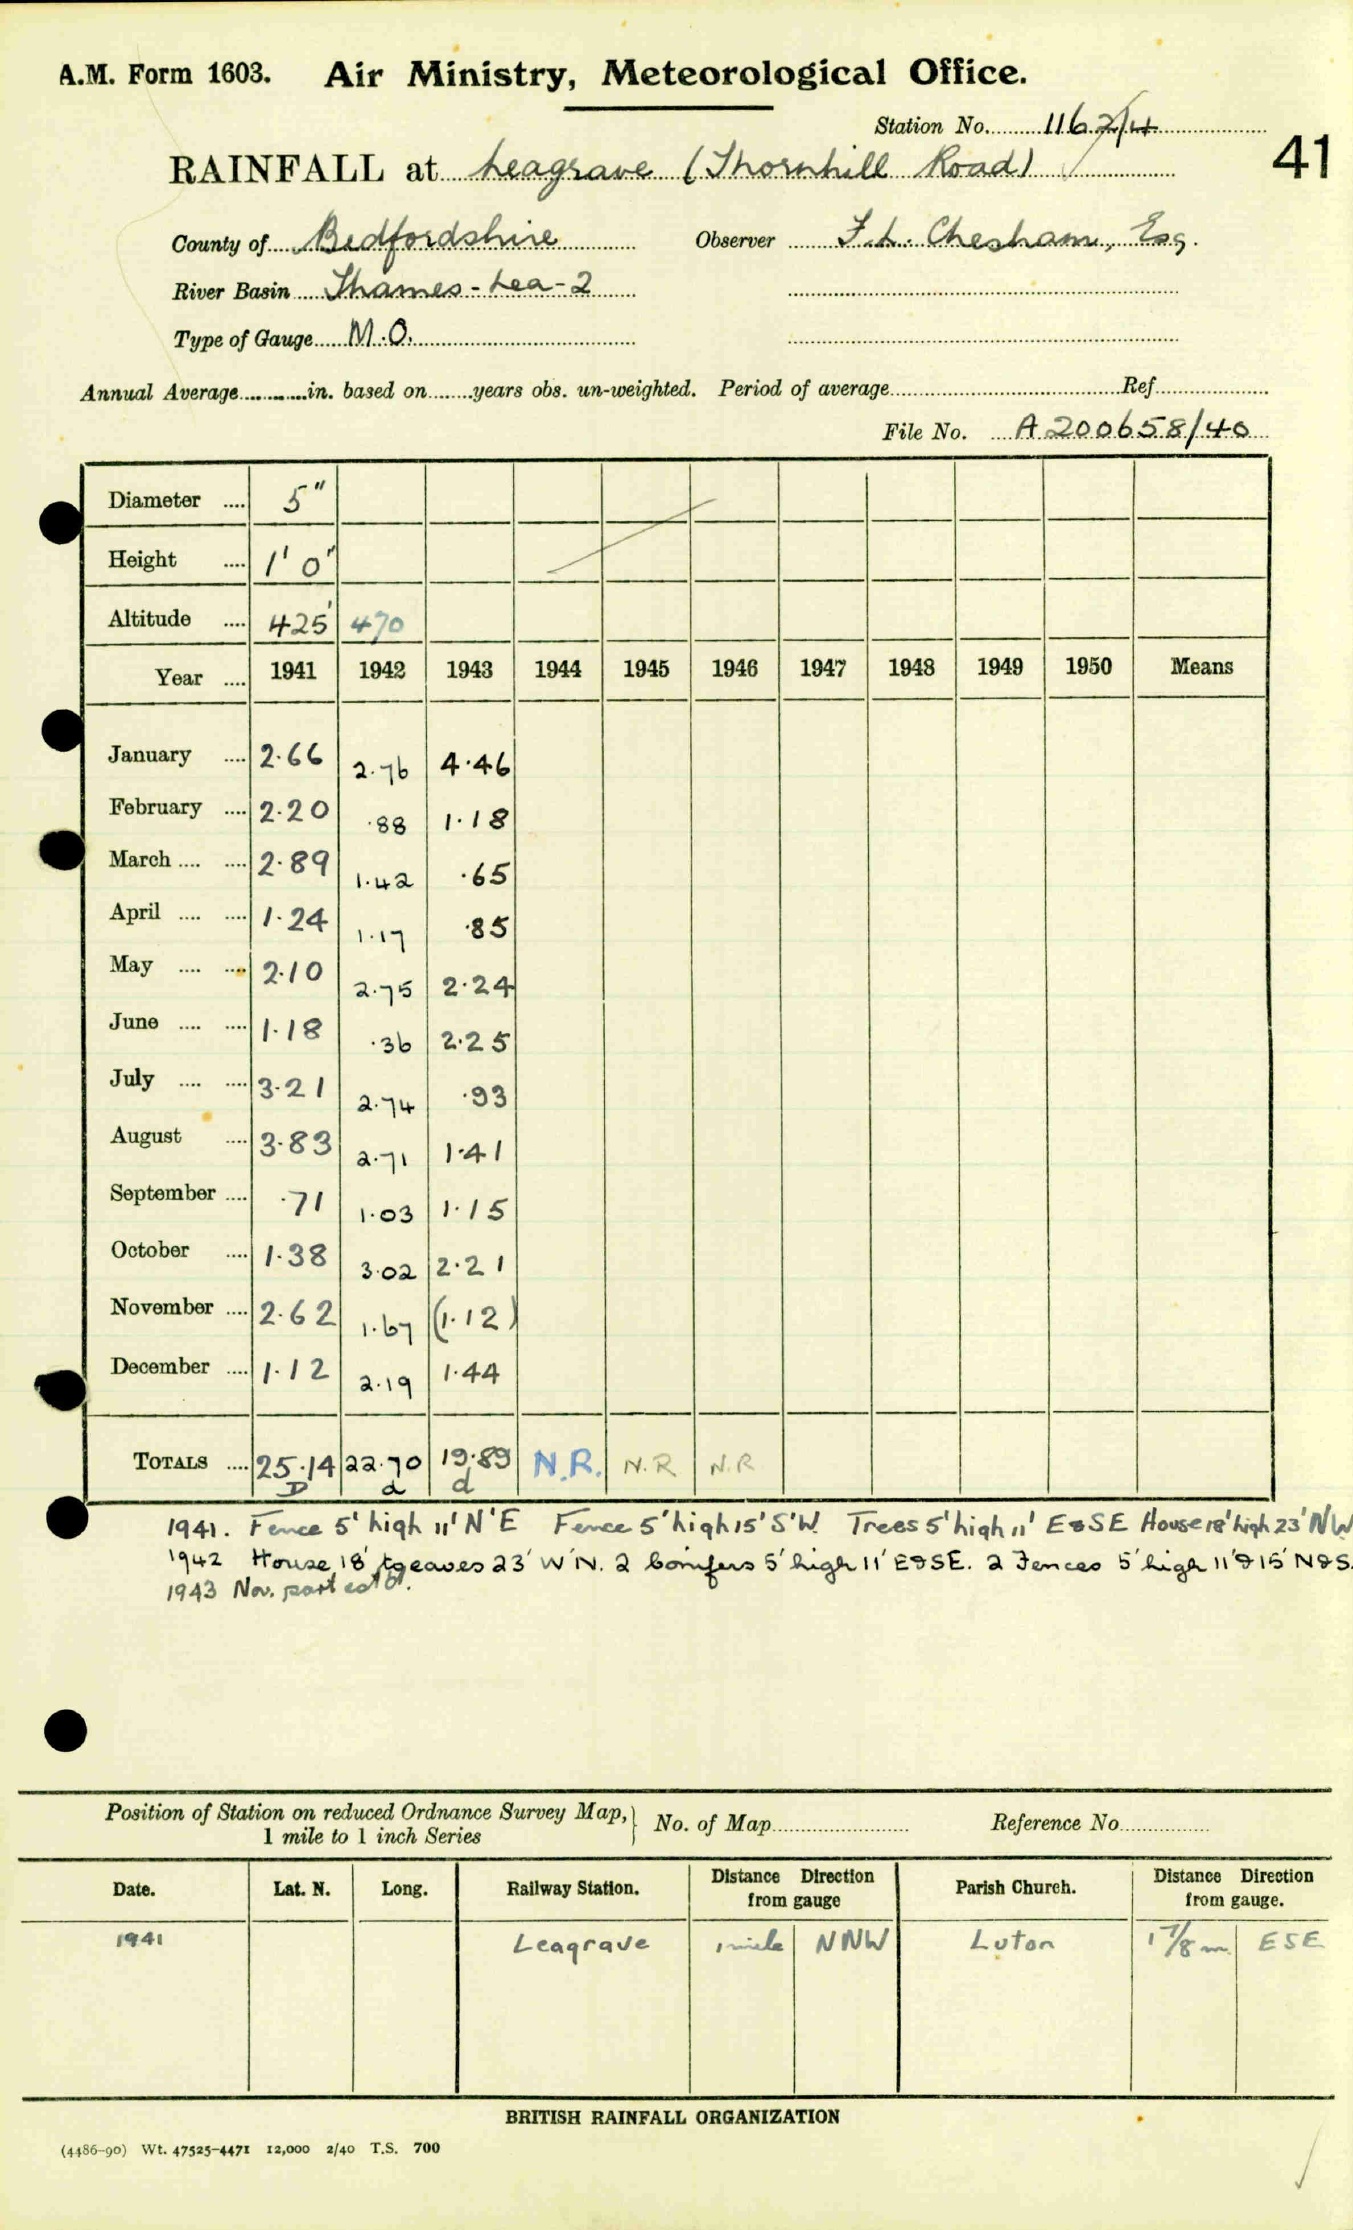 A.M. Form 1603. Air Ministry, Meteorological Office.
Station No. 1162/4
41
RAINFALL at Leagrave (Thornhill Road)
County of Bedfordshire Observer F.L. Chesham, Esq.
River Basin Thames-Lea-2
Type of Gauge M.O.
Annual Average in. based on years obs. un-weighted. Period of average Ref
File No. A 200658/40
Diameter .... 5"
Height .... 1' 0"
Altitude .... 425' 470
Year .... 1941 1942 1943 1944 1945 1946 1947 1948 1949 1950 Means
January .... 2.66 2.76 4.46
February .... 2.20 .88 1.18
March .... .... 2.89 1.42 .65
April .... .... 1.24 1.17 .85
May .... .... 2.10 2.75 2.24
June .... .... 1.18 .36 2.25
July .... .... 3.21 2.74 .93
August .... 3.83 2.71 1.41
September .... .71 1.03 1.15
October .... 1.38 3.02 2.21
November .... 2.62 1.67 (1.12)
December .... 1.12 2.19 1.44
TOTALS .... 25.14 22.70 19.89 N.R. N.R N.R
D d d
1941. Fence 5' high 11' N'E Fence 5' high 15' S'W. Trees 5' high 11' E&SE House 18' high 23' NW
1942 House 18' to eaves 23' W'N. 2 Conifers 5' high 11' E&SE. 2 Fences 5' high 11'&15' N&S.
1943 Nov. part estd.
Position of Station on reduced Ordnance Survey Map, 1 mile to 1 inch Series } No. of Map Reference No
Date. Lat. N. Long. Railway Station. Distance Direction from gauge Parish Church. Distance Direction from gauge.
1941 Leagrave 1 mile NNW Luton 1 7/8 m ESE
BRITISH RAINFALL ORGANIZATION
(4486-90) Wt. 47525-4471 12,000 2/40 T.S. 700